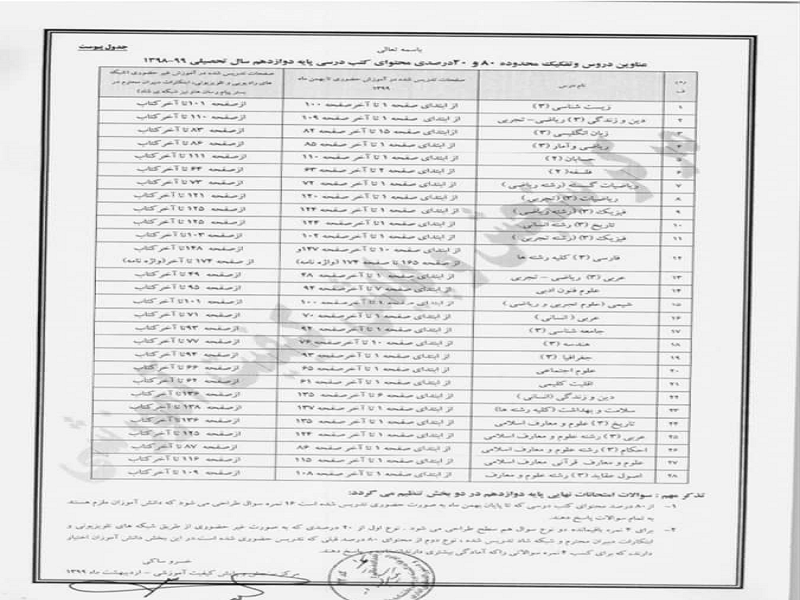 باسمه تعالی
جدول پیوست
عناوین دروس وتفکیک محدوده ۸۰ و ۲۰درصدی محتوای کتب درسی پایه دوازدهم سال تحصیلی ۹۹-۱۳۹۸
ردیف نام درس صفحات تدریس شده در آموزش حضوری تا بهمن ماه ۱۳۹۹ صفحات تدریس شده در آموزش غیر حضوری (شبکه های رادیویی و تلویزیونی، ابتکارات دبیران محترم در بستر پیام رسان ها و نیز شبکه ی شاد)
۱ زیست شناسی (۳) از ابتدای صفحه ۱ تا آخر صفحه ۱۰۰ از صفحه ۱۰۱ تا آخر کتاب
۲ دین و زندگی (۳) ریاضی- تجربی از ابتدای صفحه ۱ تا آخر صفحه ۱۰۹ از صفحه ۱۱۰ تا آخر کتاب
۳ زبان انگلیسی (۳) از ابتدای صفحه ۱۵ تا آخر صفحه ۸۲ از صفحه ۸۳ تا آخر کتاب
۴ ریاضی و آمار (۳) از ابتدای صفحه ۱ تا آخر صفحه ۸۵ از صفحه ۸۶ تا آخر کتاب
۵ حسابان (۲) از ابتدای صفحه ۱ تا آخر صفحه ۱۱۰ از صفحه ۱۱۱ تا آخر کتاب
۶ فلسفه (۲) از ابتدای صفحه ۲ تا آخر صفحه ۶۳ از صفحه ۶۴ تا آخر کتاب
۷ ریاضیات گسسته (رشته ریاضی) از ابتدای صفحه ۱ تا آخر صفحه ۷۲ از صفحه ۷۳ تا آخر کتاب
۸ ریاضیات (۳) (تجربی) از ابتدای صفحه ۱ تا آخر صفحه ۱۲۰ از صفحه ۱۲۱ تا آخر کتاب
۹ فیزیک (۳) (رشته ریاضی) از ابتدای صفحه ۱ تا آخر صفحه ۱۲۴ از صفحه ۱۲۵ تا آخر کتاب
۱۰ تاریخ (۳) رشته انسانی از ابتدای صفحه ۱ تا آخر صفحه ۱۲۴ از صفحه ۱۲۵ تا آخر کتاب
۱۱ فیزیک (۳) (رشته تجربی) از ابتدای صفحه ۱ تا آخر صفحه ۱۰۲ از صفحه ۱۰۳ تا آخر کتاب
۱۲ فارسی (۳) کلیه رشته ها از ابتدای صفحه ۱۰ تا آخر صفحه ۱۴۷ و از صفحه ۱۶۵ تا صفحه ۱۷۴ (واژه نامه) از صفحه ۱۴۸ تا آخر کتاب و از صفحه ۱۷۴ تا آخر (واژه نامه)
۱۳ عربی (۳) ریاضی - تجربی از ابتدای صفحه ۱ تا آخر صفحه ۴۸ از صفحه ۴۹ تا آخر کتاب
۱۴ علوم فنون ادبی از ابتدای صفحه ۷ تا آخر صفحه ۹۴ از صفحه ۹۵ تا آخر کتاب
۱۵ شیمی (علوم تجربی و ریاضی) از ابتدای صفحه ۱ تا آخر صفحه ۱۰۰ از صفحه ۱۰۱ تا آخر کتاب
۱۶ عربی (انسانی) از ابتدای صفحه ۱ تا آخر صفحه ۷۰ از صفحه ۷۱ تا آخر کتاب
۱۷ جامعه شناسی (۳) از ابتدای صفحه ۱ تا آخر صفحه ۹۲ از صفحه ۹۳ تا آخر کتاب
۱۸ هندسه (۳) از ابتدای صفحه ۱۰ تا آخر صفحه ۷۶ از صفحه ۷۷ تا آخر کتاب
۱۹ جغرافیا (۳) از ابتدای صفحه ۱ تا آخر صفحه ۹۳ از صفحه ۹۴ تا آخر کتاب
۲۰ علوم اجتماعی از ابتدای صفحه ۱ تا آخر صفحه ۶۵ از صفحه ۶۶ تا آخر کتاب
۲۱ اقلیت کلیمی از ابتدای صفحه ۱ تا آخر صفحه ۶۱ از صفحه ۶۲ تا آخر کتاب
۲۲ دین و زندگی (انسانی) از ابتدای صفحه ۶ تا آخر صفحه ۱۳۵ از صفحه ۱۳۶ تا آخر کتاب
۲۳ سلامت و بهداشت (کلیه رشته ها) از ابتدای صفحه ۱ تا آخر صفحه ۱۳۷ از صفحه ۱۳۸ تا آخر کتاب
۲۴ تاریخ (۳) علوم و معارف اسلامی از ابتدای صفحه ۱ تا آخر صفحه ۱۳۵ از صفحه ۱۳۶ تا آخر کتاب
۲۵ عربی (۳) رشته علوم و معارف اسلامی از ابتدای صفحه ۱ تا آخر صفحه ۱۲۴ از صفحه ۱۲۵ تا آخر کتاب
۲۶ احکام (۳) رشته علوم و معارف اسلامی از ابتدای صفحه ۱ تا آخر صفحه ۸۶ از صفحه ۸۷ تا آخر کتاب
۲۷ علوم و معارف قرآنی معارف اسلامی از ابتدای صفحه ۱ تا آخر صفحه ۱۱۵ از صفحه ۱۱۶ تا آخر کتاب
۲۸ اصول عقاید (۳) رشته علوم و معارف اسلامی از ابتدای صفحه ۱ تا آخر صفحه ۱۰۸ از صفحه ۱۰۹ تا آخر کتاب
تذکر مهم : سوالات امتحانات نهایی پایه دوازدهم در دو بخش تنظیم می گردد:
۱- از ۸۰ درصد محتوای کتب درسی که تا پایان بهمن ماه به صورت حضوری تدریس شده است ۱۶ نمره سوال طراحی می شود که دانش آموزان ملزم هستند
به تمام سوالات پاسخ دهند.
۲- برای ۴ نمره باقیمانده دو نوع سوال هم سطح طراحی می شود . نوع اول از ۲۰ درصدی که به صورت غیر حضوری از طریق شبکه های تلویزیونی و
ابتکارات دبیران محترم و شبکه شاد تدریس شده ؛ نوع دوم از محتوای ۸۰ درصد قبلی که تدریس حضوری شده است در این بخش دانش آموزان اختیار
دارند، که برای کسب ۴ نمره سوالاتی راکه آمادگی بیشتری دارند پاسخ دهند.
خسرو ساکی
مرکز سنجش و پایش کیفیت آموزشی - اردیبهشت ماه ۱۳۹۹